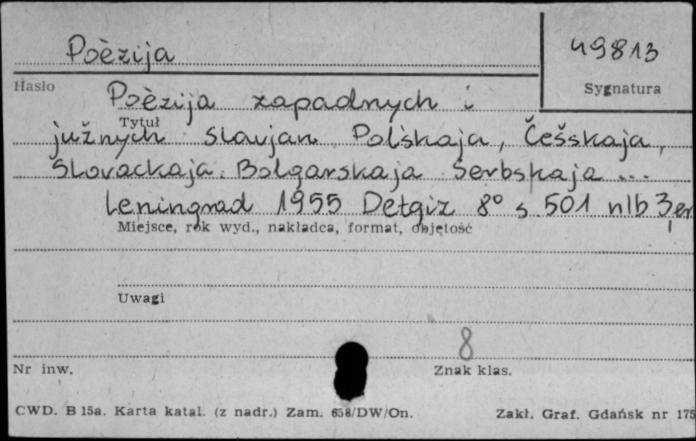 Poèzija
49813
Hasło
Sygnatura
Poèzija zapadnych i
Tytuł
južnych slavjan Pol'skaja, Češskaja,
Slovackaja. Bolgarskaja Serbskaja ...
Leningrad 1955 Detgiz 8° s. 501 nlb 3
Miejsce, rok wyd., nakładca, format, objętość
Uwagi
8
Nr inw.
Znak klas.
CWD. B 15a. Karta katal. (z nadr.) Zam. 658/DW/On.
Zakł. Graf. Gdańsk nr 175